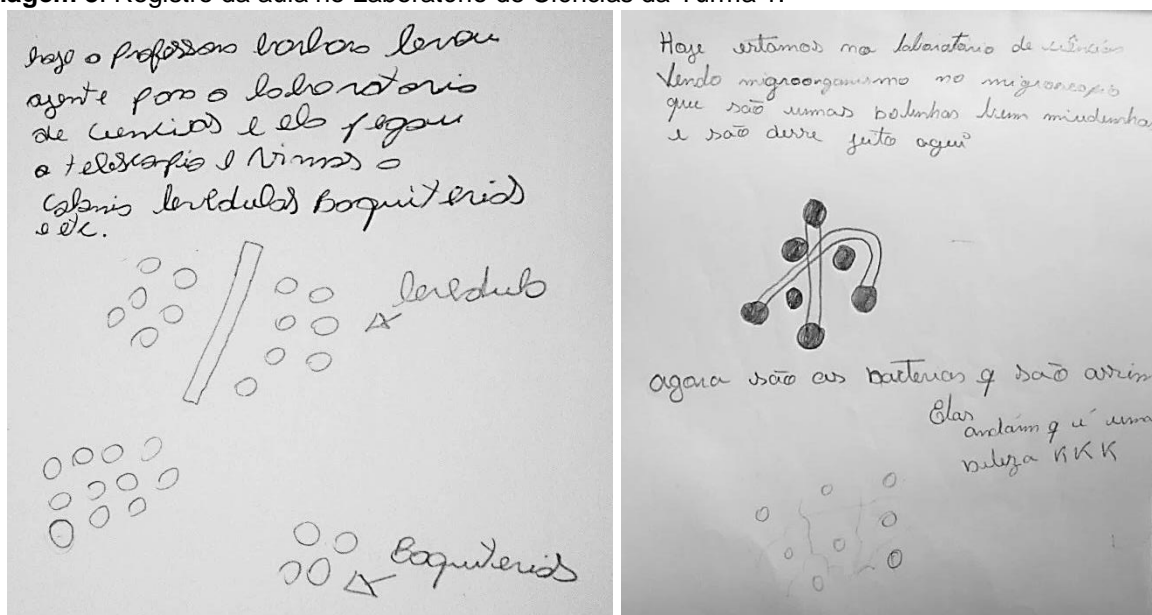 agem 3. Registro da aula no Laboratório de Ciências da Turma 1.
hoje o professora levou
agente para o laboratorio
de ciencias e ela pegou
o telescopio e vimos o
levedulas Boquiterias
e etc.
levedula
Boquiterias
Hoje estamos no laboratorio de ciências
Vendo migroorganismo no migroscopio
que são umas bolinhas bem miudinhas
e são desse jeito aqui
agora são as bacterias q são assim
Elas
andam q é uma
beleza KKK